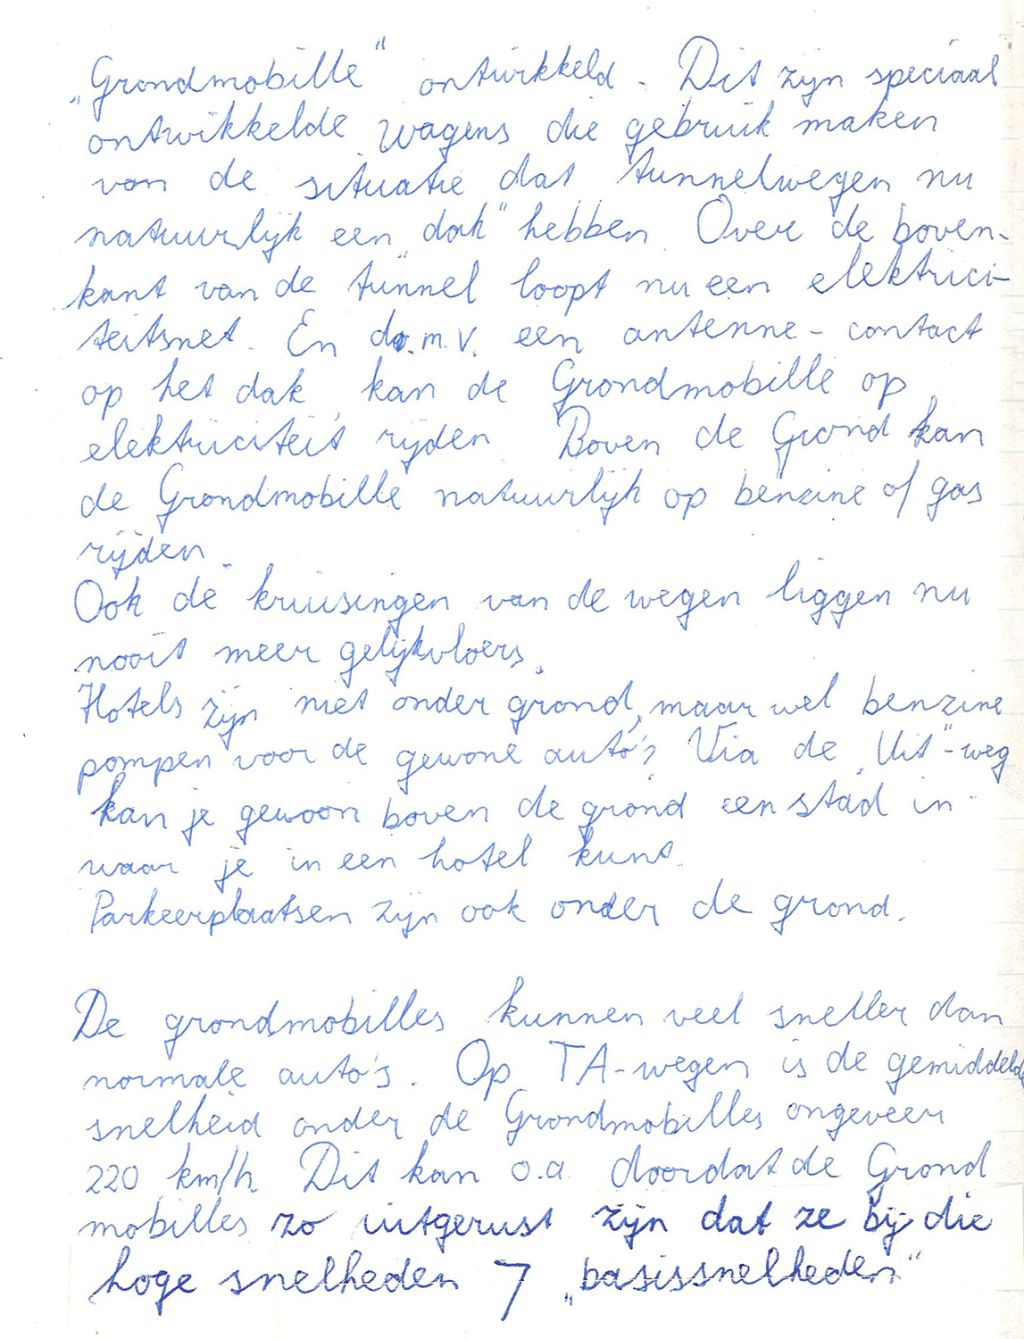 „Grondmobille" ontwikkeld. Dit zijn speciaal
ontwikkelde wagens die gebruik maken
van de situatie dat tunnelwegen nu
natuurlijk een „dak" hebben. Over de boven-
kant van de tunnel loopt nu een elektrici-
teitsnet. En d.m.v. een antenne-contact
op het dak kan de Grondmobille op
elektriciteit rijden. Boven de Grond kan
de Grondmobille natuurlijk op benzine of gas
rijden.
Ook de kruisingen van de wegen liggen nu
nooit meer gelijkvloers.
Hotels zijn niet onder grond, maar wel benzine
pompen voor de gewone auto's. Via de „Uit"-weg
kan je gewoon boven de grond een stad in
waar je in een hotel kunt.
Parkeerplaatsen zijn ook onder de grond.
De grondmobilles kunnen veel sneller dan
normale auto's. Op TA-wegen is de gemiddelde
snelheid onder de Grondmobilles ongeveer
220 km/h. Dit kan o.a. doordat de Grond
mobilles zo uitgerust zijn dat ze bij die
hoge snelheden 7 „basissnelheden"